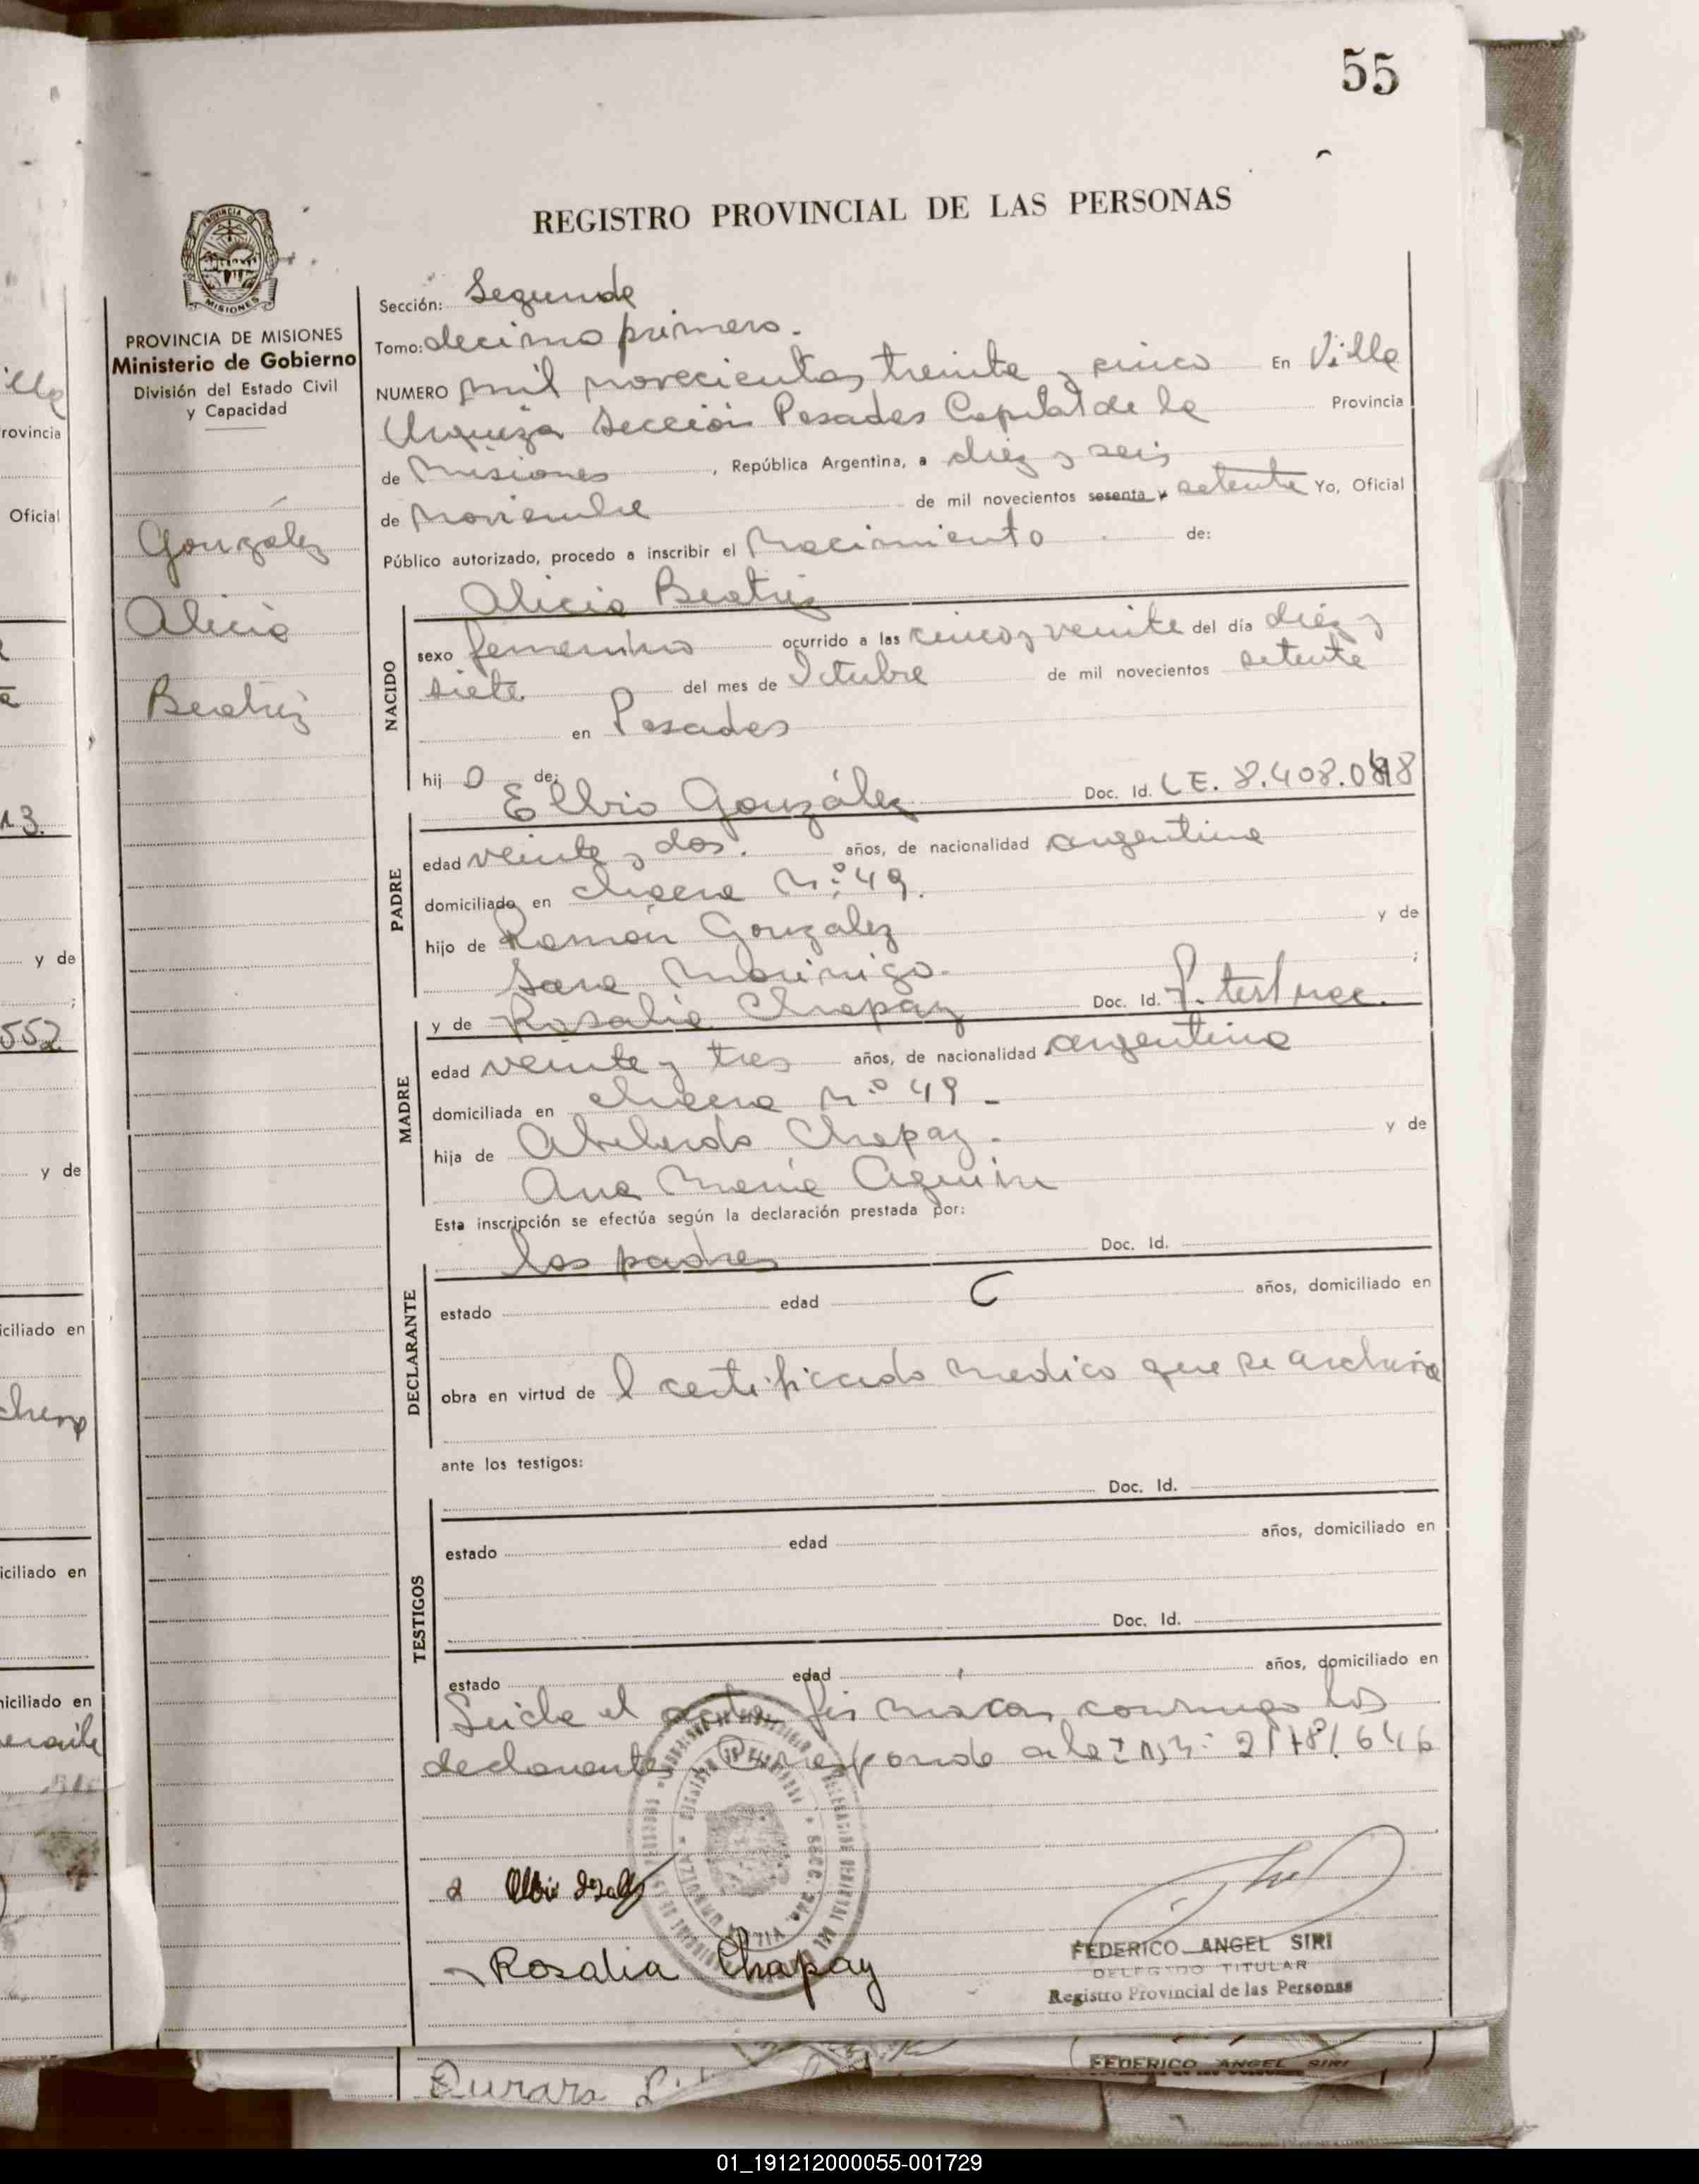 55
REGISTRO PROVINCIAL DE LAS PERSONAS
PROVINCIA DE MISIONES
Ministerio de Gobierno
División del Estado Civil
y Capacidad
González
Alicia
Beatriz
Sección: Segunda
Tomo: decimo primero.
NUMERO mil novecientos treinta y cinco En Villa
Urquiza Sección Posadas Capital de la Provincia
de Misiones, República Argentina, a diez y seis
de Noviembre de mil novecientos sesenta y setenta Yo, Oficial
Público autorizado, procedo a inscribir el Nacimiento de:
Alicia Beatriz
NACIDO
sexo femenino ocurrido a las cinco y veinte del día diez y
siete del mes de Octubre de mil novecientos setenta
en Posadas
hij a de:
Elbio González Doc. Id. LE. 8.408.0
PADRE
edad veinte y dos. años, de nacionalidad argentina
domiciliado en chacra Nº 49.
hijo de Ramón González y de
Sara Morinigo. ;
y de Rosalia Chapay Doc. Id.
MADRE
edad veinte y tres años, de nacionalidad argentina
domiciliada en chacra Nº 49 -
hija de Abelardo Chapay. y de
Ana María
Esta inscripción se efectúa según la declaración prestada por:
los padres Doc. Id.
DECLARANTE
estado edad años, domiciliado en
obra en virtud de l certificado medico que se archiva
ante los testigos:
Doc. Id.
TESTIGOS
estado edad años, domiciliado en
Doc. Id.
estado edad años, domiciliado en
Leida el acta firman conmigo los
declarantes Corresponde a la
Rosalia Chapay
FEDERICO ANGEL SIRI
DELEGADO TITULAR
Registro Provincial de las Personas
FEDERICO ANGEL SIRI
01_191212000055-001729